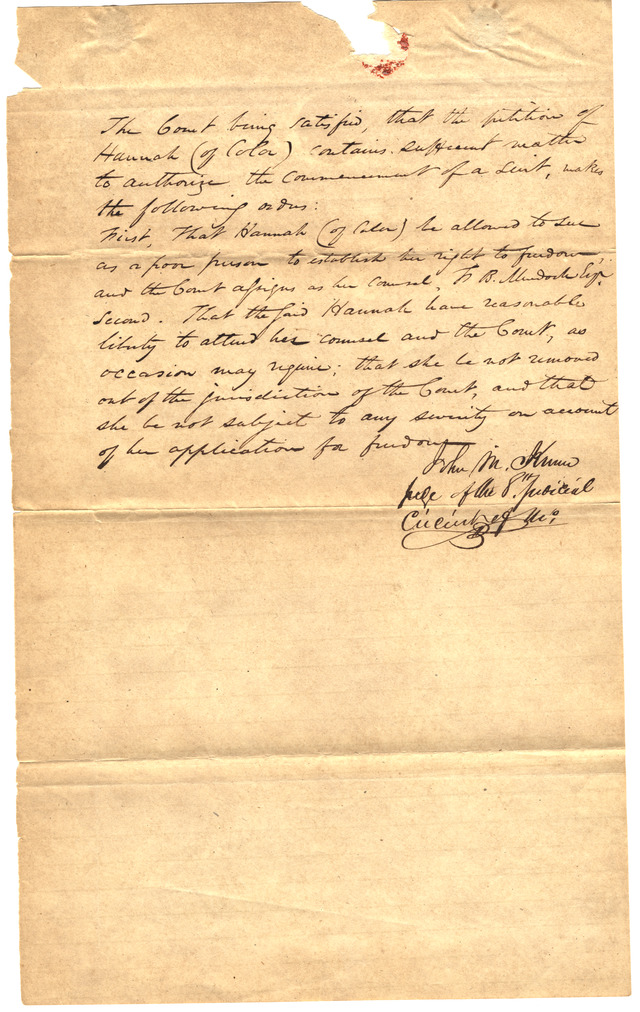 The Court being satisfied, that the petition of
Hannah (of Color) contains sufficient matter
to authorize the commencement of a suit, makes
the following order:
First, That Hannah (of Color) be allowed to sue
as a poor person to establish her right to freedom,
and the Court assigns as her counsel, F. B. Murdock Esqr.
Second. That the said Hannah have reasonable
liberty to attend her counsel and the Court, as
occasion may require; that she be not removed
out of the jurisdiction of the Court, and that
she be not subject to any severity on account
of her application for freedom
John M. Krum
judge of the 8th. Judicial
Circuit of Mo.